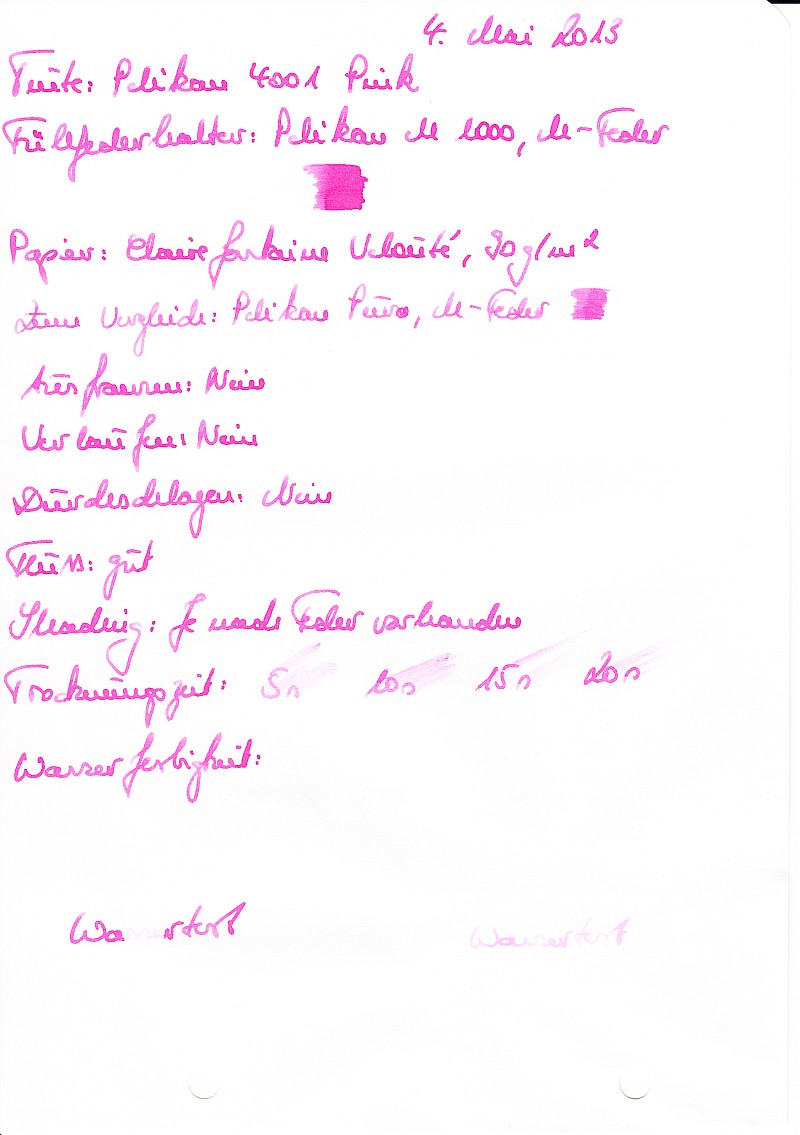 4. Mai 2013
Tinte: Pelikan 4001 Pink
Füllfederhalter: Pelikan M 1000, M-Feder
Papier: Clairefontaine Velouté, 90g/m²
Zum Vergleich: Pelikan Pura, M-Feder
Ausfransen: Nein
Verlaufen: Nein
Durchschlagen: Nein
Fluss: gut
Shading: Je nach Feder vorhanden
Trocknungszeit: 5s 10s 15s 20s
Wasserfestigkeit:
Wassertest Wassertest